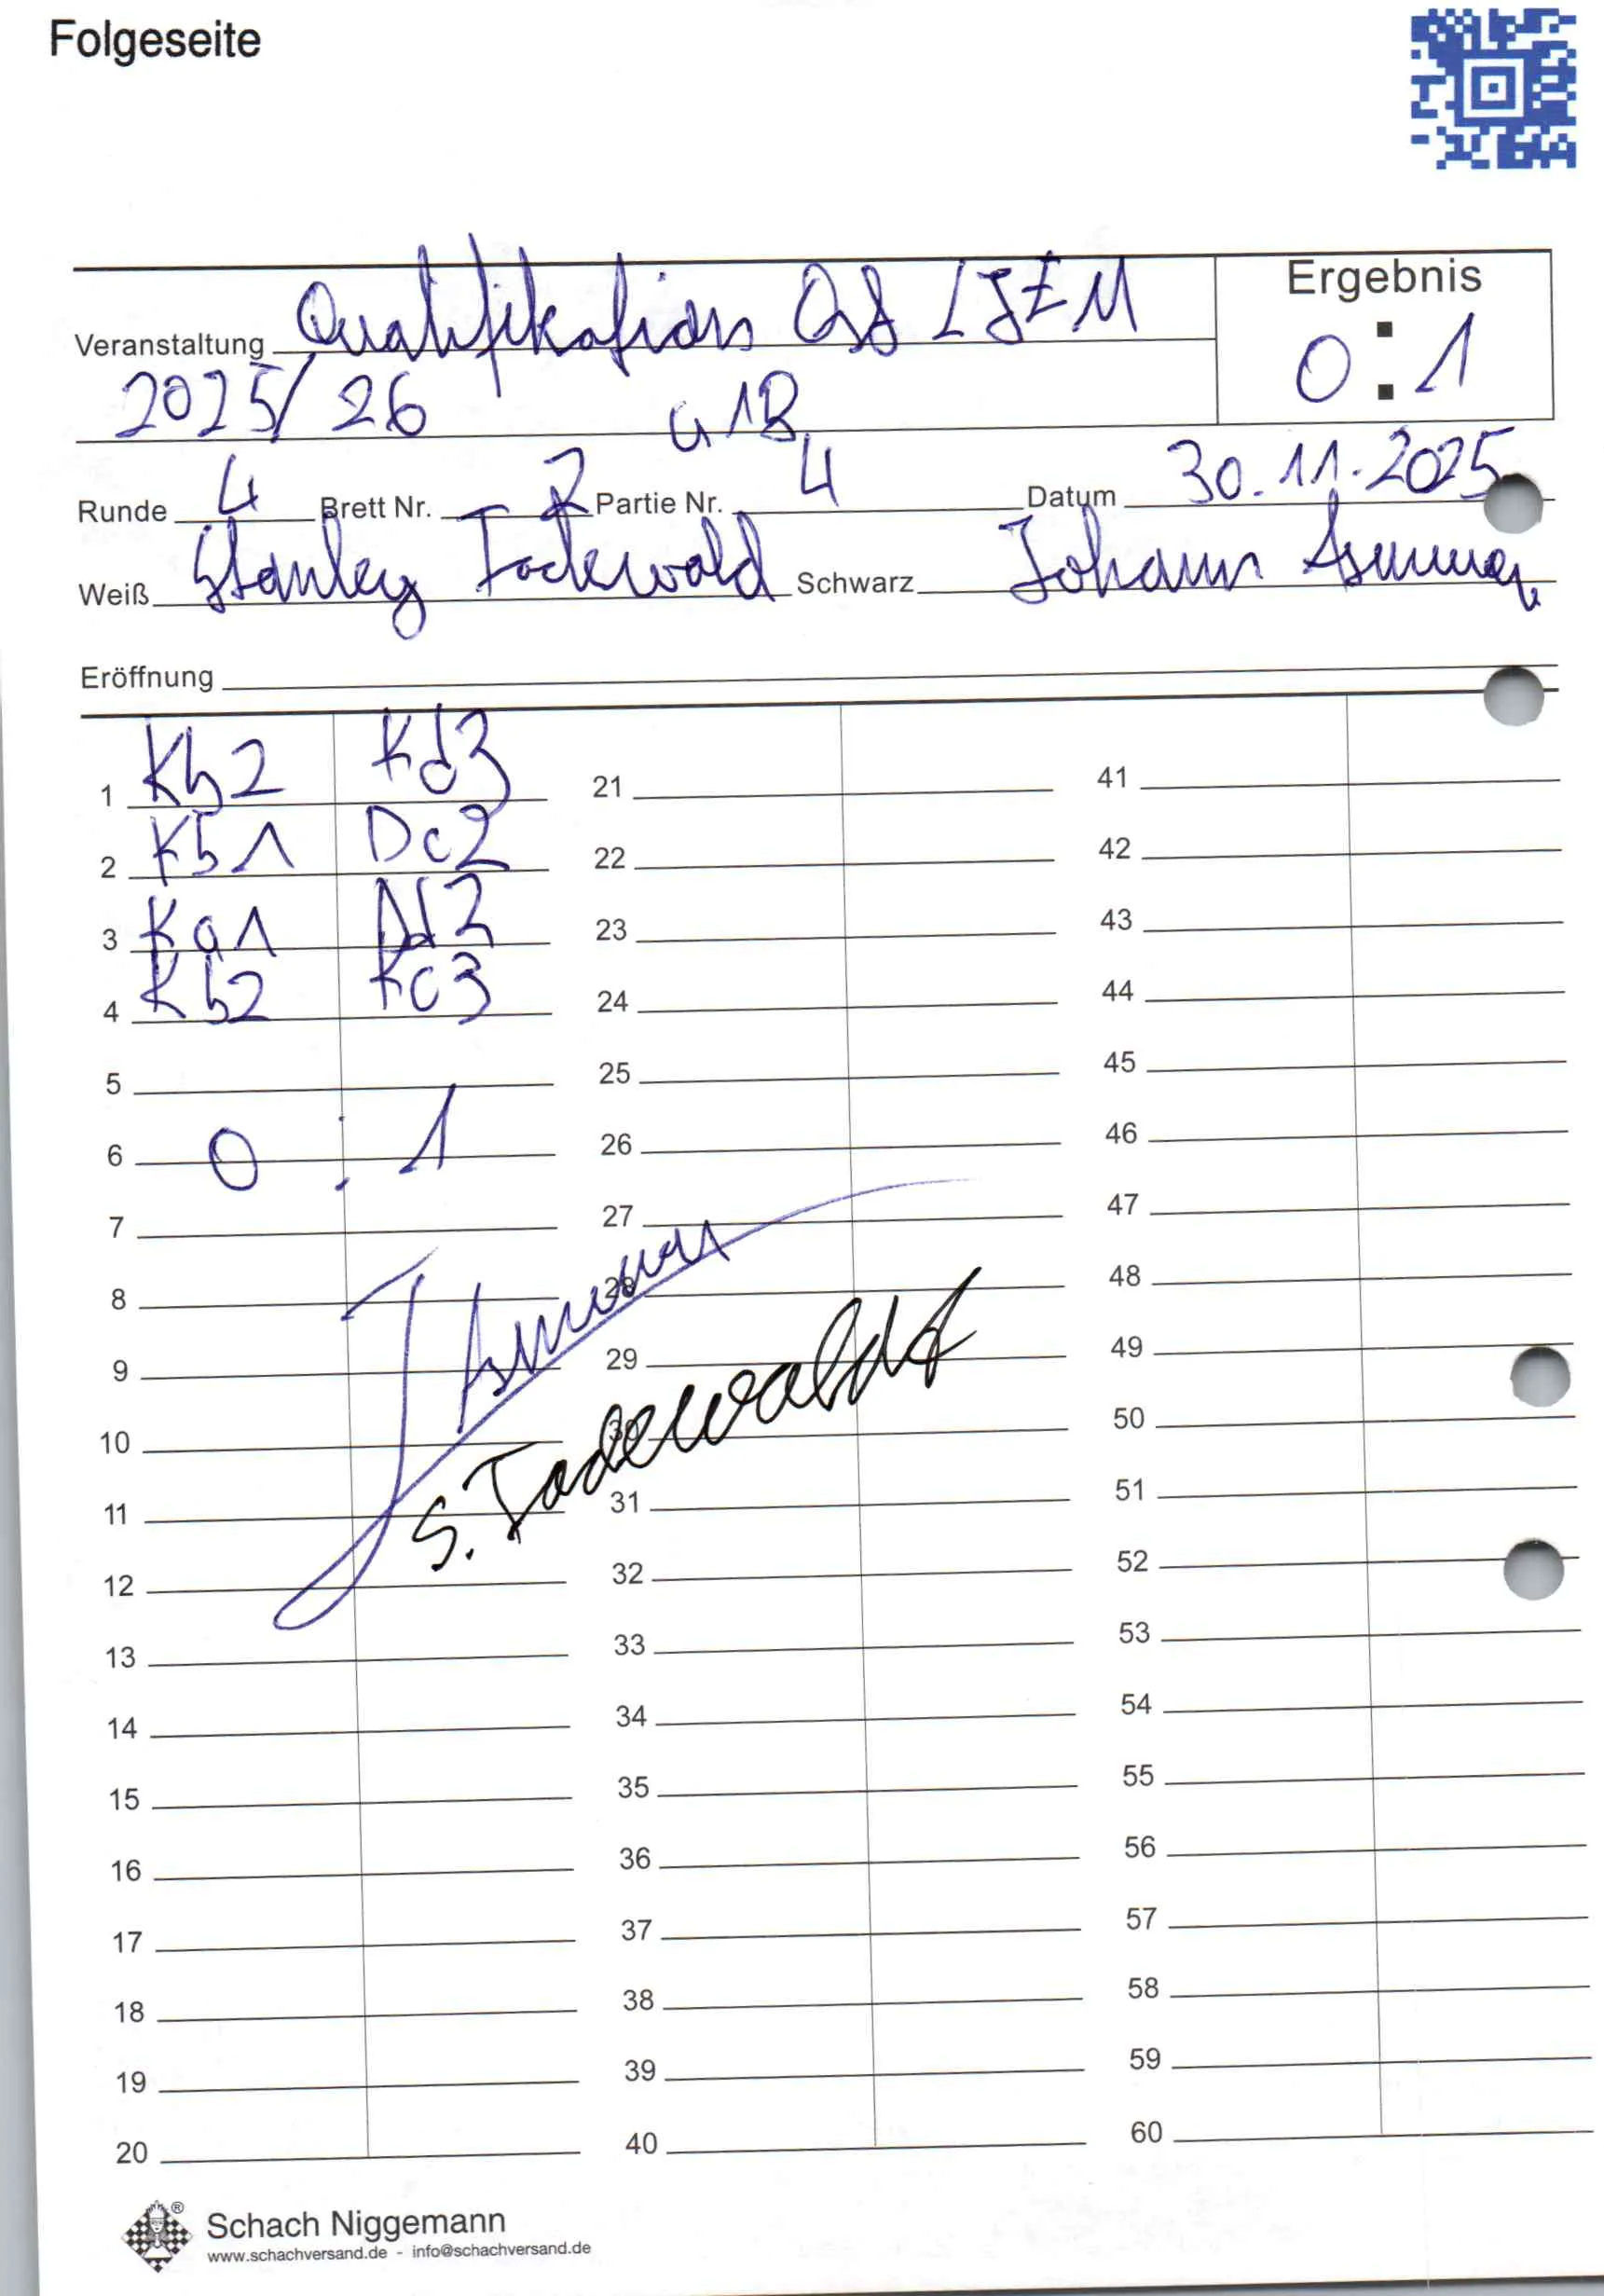 Folgeseite
Veranstaltung Qualifikation LJEM
2025/26 U18
Ergebnis
0:1
Runde 4 Brett Nr. 2 Partie Nr. 4 Datum 30.11.2025
Weiß Stanley Tadewald Schwarz Johann
Eröffnung
1 Kb2 Kd3 21 41
2 Kb1 Dc2 22 42
3 Ka1 Dd2 23 43
4 Kb2 Kc3 24 44
5 25 45
6 0 : 1 26 46
7 27 47
8 28 48
9 29 49
10 30 50
S. Tadewaldt
11 31 51
12 32 52
13 33 53
14 34 54
15 35 55
16 36 56
17 37 57
18 38 58
19 39 59
20 40 60
Schach Niggemann
www.schachversand.de - info@schachversand.de